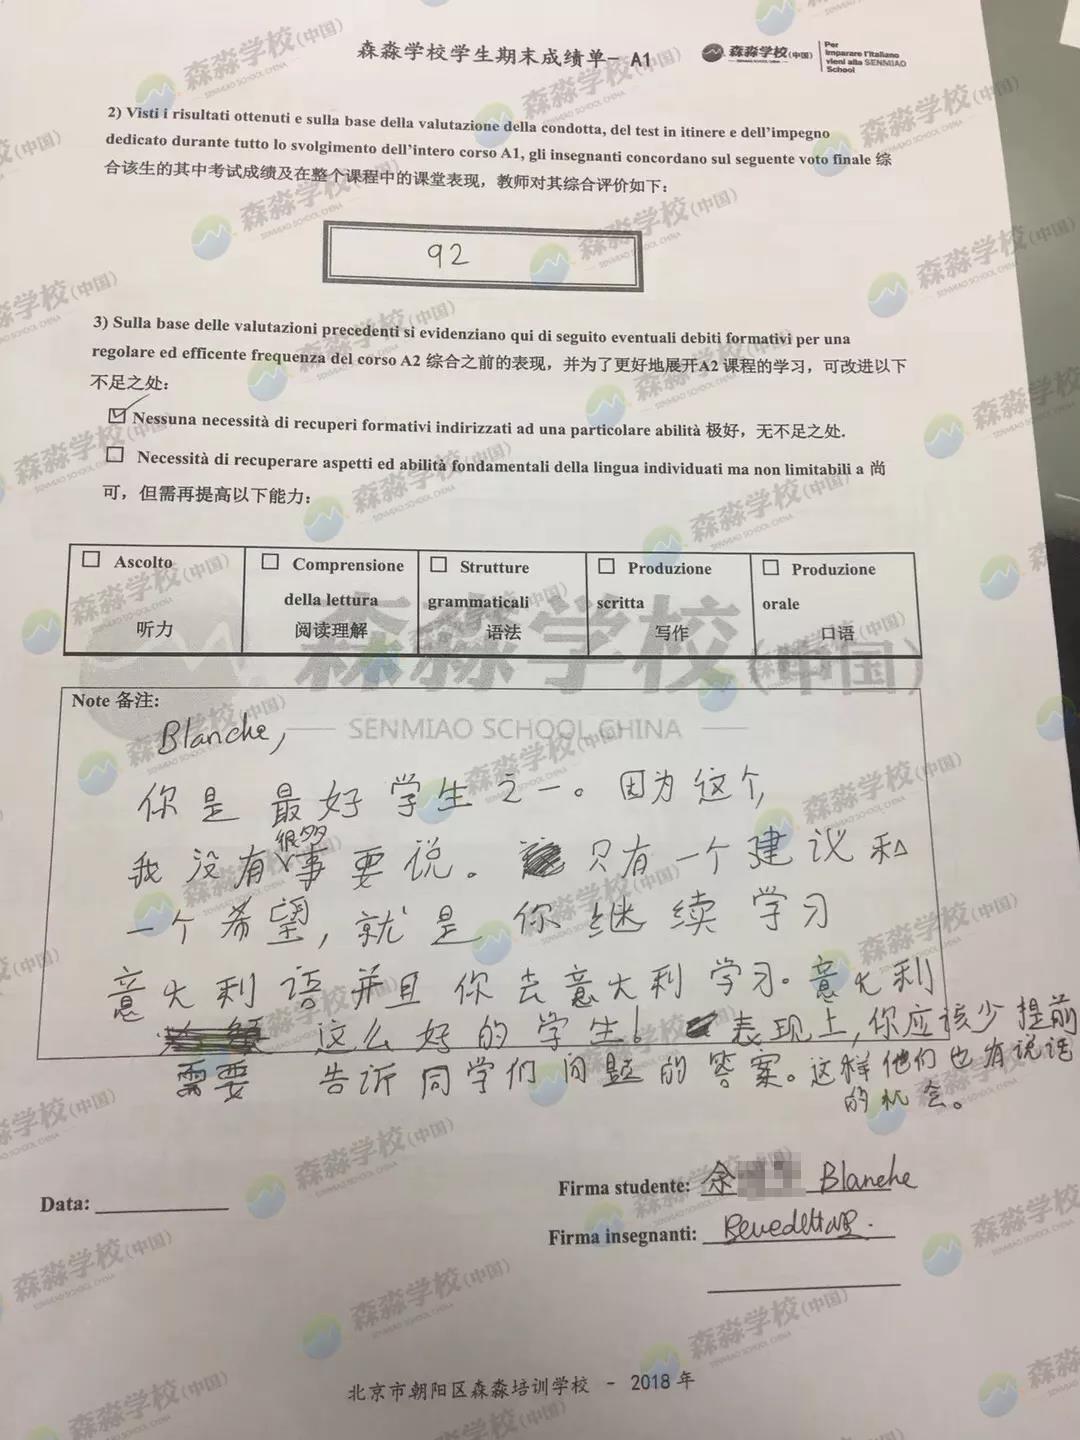 森淼学校学生期末成绩单- A1
森淼学校(中国)
SENMIAO SCHOOL CHINA
Per
imparare l'Italiano
vieni alla SENMIAO
School
2) Visti i risultati ottenuti e sulla base della valutazione della condotta, del test in itinere e dell'impegno
dedicato durante tutto lo svolgimento dell'intero corso A1, gli insegnanti concordano sul seguente voto finale 综
合该生的其中考试成绩及在整个课程中的课堂表现，教师对其综合评价如下：
92
3) Sulla base delle valutazioni precedenti si evidenziano qui di seguito eventuali debiti formativi per una
regolare ed efficente frequenza del corso A2 综合之前的表现，并为了更好地展开A2 课程的学习，可改进以下
不足之处：
Nessuna necessità di recuperi formativi indirizzati ad una particolare abilità 极好，无不足之处.
Necessità di recuperare aspetti ed abilità fondamentali della lingua individuati ma non limitabili a 尚
可，但需再提高以下能力：
Ascolto
听力
Comprensione
della lettura
阅读理解
Strutture
grammaticali
语法
Produzione
scritta
写作
Produzione
orale
口语
森淼学校(中国)
SENMIAO SCHOOL CHINA
Note 备注:
Blanche,
你是最好学生之一。因为这个,
很多
我没有事要说。只有一个建议和
一个希望, 就是你继续学习
意大利语并且你去意大利学习。意大利
这么好的学生! 表现上, 你应该少提前
需要 告诉同学们问题的答案。这样他们也有说话
的机会。
Data:
Firma studente: 余 Blanche
Firma insegnanti:
北京市朝阳区森淼培训学校 - 2018 年